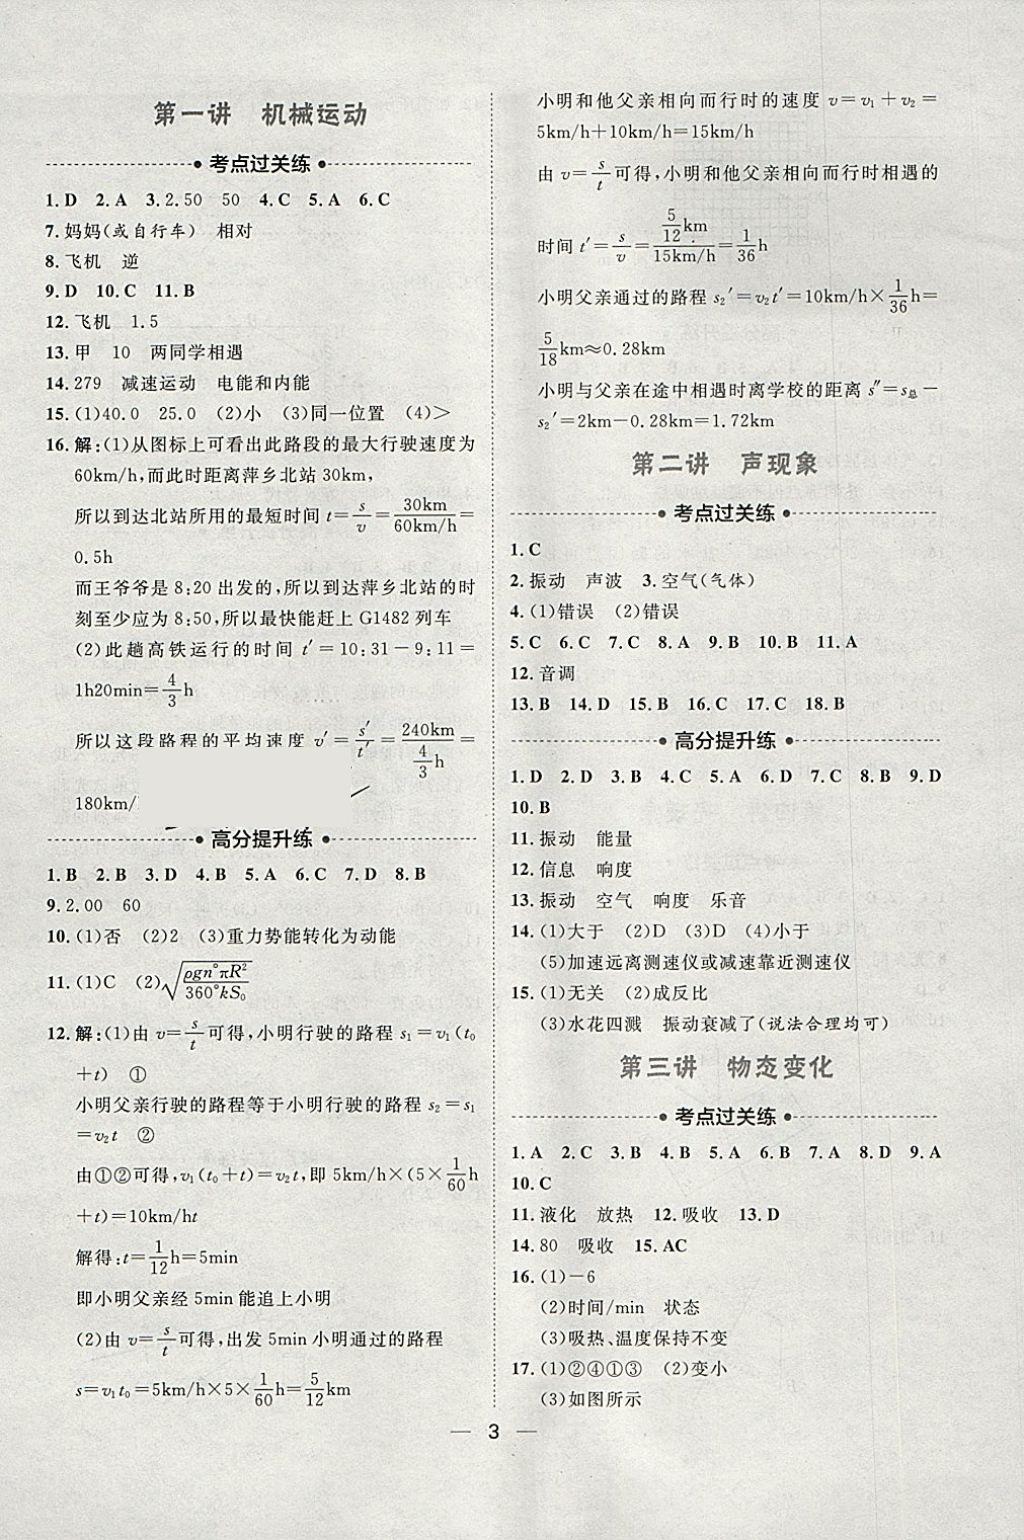 第一讲 机械运动
考点过关练
1.D 2.A 3.2.50 50 4.C 5.A 6.C
7.妈妈(或自行车) 相对
8.飞机 逆
9.D 10.C 11.B
12.飞机 1.5
13.甲 10 两同学相遇
14.279 减速运动 电能和内能
15.(1)40.0 25.0 (2)小 (3)同一位置 (4)>
16.解:(1)从图标上可看出此路段的最大行驶速度为
60km/h,而此时距离萍乡北站30km,
所以到达北站所用的最短时间t=s/v=30km/60km/h=
0.5h
而王爷爷是8:20出发的,所以到达萍乡北站的时
刻至少应为8:50,所以最快能赶上G1482列车
(2)此趟高铁运行的时间t′=10:31-9:11=
1h20min=4/3h
所以这段路程的平均速度v′=s′/t′=240km/(4/3)h=
180km/
高分提升练
1.B 2.B 3.D 4.B 5.A 6.C 7.D 8.B
9.2.00 60
10.(1)否 (2)2 (3)重力势能转化为动能
11.(1)C (2)√(ρgn°πR²/360°kS₀)
12.解:(1)由v=s/t可得,小明行驶的路程s₁=v₁(t₀
+t) ①
小明父亲行驶的路程等于小明行驶的路程s₂=s₁
=v₂t ②
由①②可得,v₁(t₀+t)=v₂t,即5km/h×(5×1/60h
+t)=10km/ht
解得:t=1/12h=5min
即小明父亲经5min能追上小明
(2)由v=s/t可得,出发5min小明通过的路程
s=v₁t₀=5km/h×5×1/60h=5/12km
小明和他父亲相向而行时的速度v=v₁+v₂=
5km/h+10km/h=15km/h
由v=s/t可得,小明和他父亲相向而行时相遇的
时间t′=s/v=(5/12)km/15km/h=1/36h
小明父亲通过的路程s₂′=v₂t′=10km/h×1/36h=
5/18km≈0.28km
小明与父亲在途中相遇时离学校的距离s″=s总-
s₂′=2km-0.28km=1.72km
第二讲 声现象
考点过关练
1.C
2.振动 声波 3.空气(气体)
4.(1)错误 (2)错误
5.C 6.C 7.C 8.A 9.B 10.B 11.A
12.音调
13.B 14.D 15.B 16.C 17.C 18.B
高分提升练
1.D 2.D 3.B 4.C 5.A 6.D 7.C 8.B 9.D
10.B
11.振动 能量
12.信息 响度
13.振动 空气 响度 乐音
14.(1)大于 (2)D (3)D (4)小于
(5)加速远离测速仪或减速靠近测速仪
15.(1)无关 (2)成反比
(3)水花四溅 振动衰减了(说法合理均可)
第三讲 物态变化
考点过关练
1.A 2.C 3.B 4.B 5.A 6.B 7.A 8.D 9.A
10.C
11.液化 放热 12.吸收 13.D
14.80 吸收 15.AC
16.(1)-6
(2)时间/min 状态
(3)吸热、温度保持不变
17.(1)②④①③ (2)变小
(3)如图所示
— 3 —